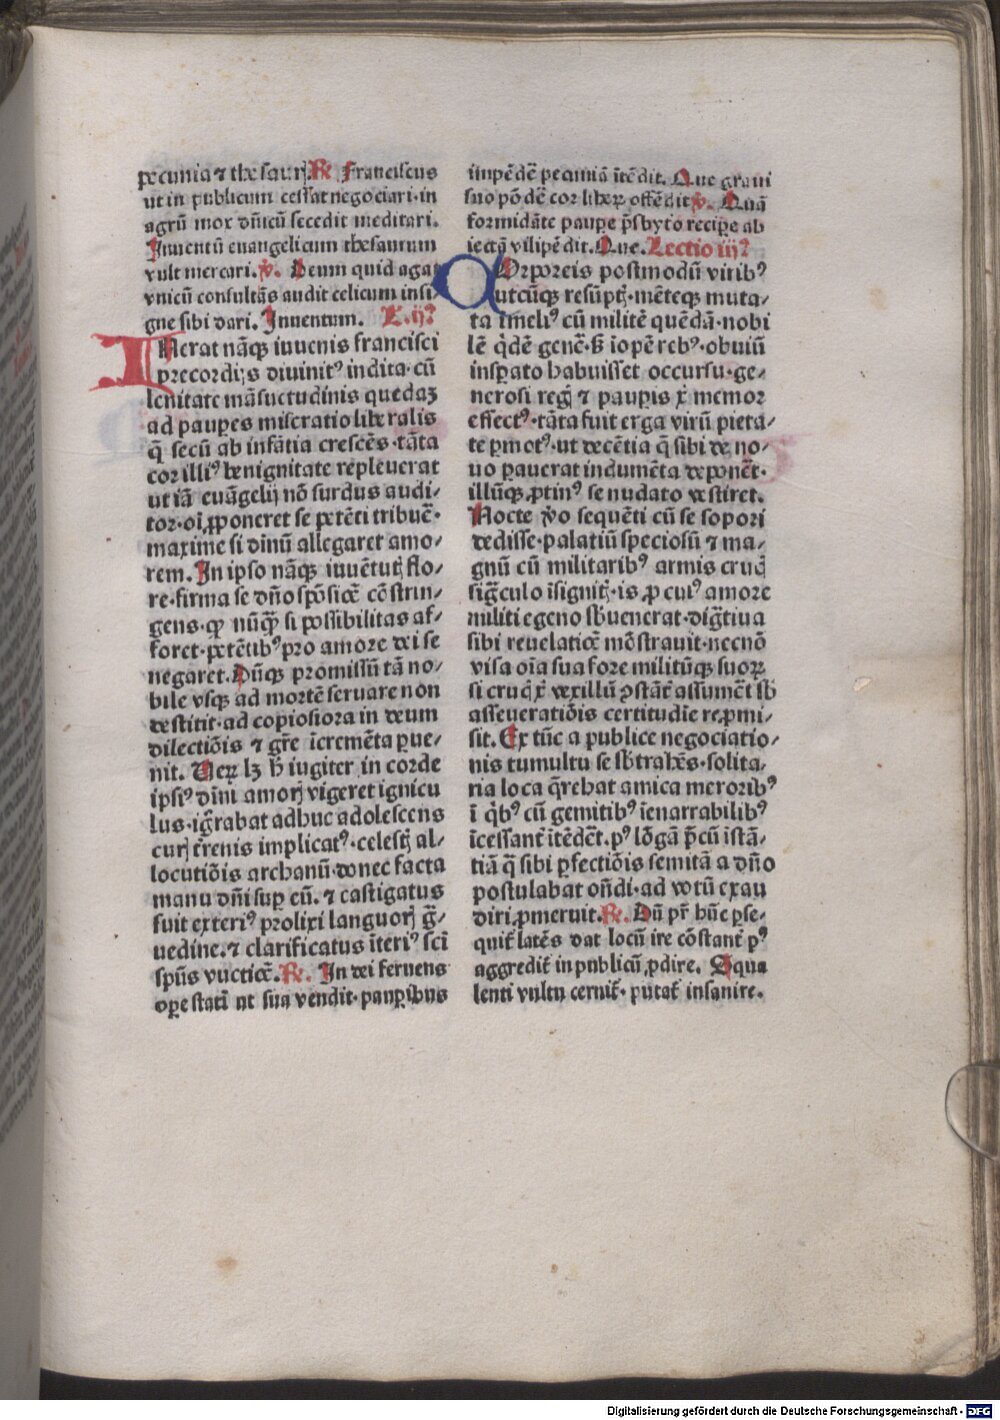 pecunia ⁊ thesaurꝭ. R̃. Franciscus
ut in publicum cessat negociari·in
agrū mox dñicū secedit meditari.
Inuentū euangelicum thesaurum
vult mercari. v̄. Deum quid agat
vnicū consultās audit celicum insi-
gne sibi dari. Inuentum. L. ij?
INerat nāqꝫ iuuenis francisci
precordijs diuinit⁹ indita·cū
lenitate māsuetudinis quedaꝫ
ad pauꝑes miseratio liberalis
q̄ secū ab infātia crescēs·tāta
cor illi⁹ benignitate repleuerat
ut iā euāgelij nō surdus audi-
tor·oī ꝓponeret se petēti tribuē·
maxime si dīnū allegaret amo-
rem. In ipso nāqꝫ iuuētutꝭ flo-
re·firma se dño spōsiōe cōstrin-
gens·ꝙ nūqꝫ̄ si possibilitas af-
foret·petētib⁹ pro amore dei se
negaret. Dūqꝫ promissū tā no-
bile vsqꝫ ad mortē seruare non
destitit·ad copiosiora in deum
dilectiōis ⁊ gr̄e īcremēta ꝑue-
nit. Ueꝝ lꝫ h̄ iugiter in corde
ipsi⁹ dīni amorꝭ vigeret ignicu
lus·ig̃rabat adhuc adolescens
curꝭ t̄renis implicat⁹·celestꝭ al-
locutiōis archanū·donec facta
manu dñi suꝑ eū.⁊ castigatus
fuit exteri⁹ prolixi languorꝭ g̃-
uedine.⁊ clarificatus īteri⁹ sc̄i
spūs vnctiōe. R̃. In dei feruens
oꝑe statī ut sua vendit·pauꝑibus
impēdē pecuniā ītēdit. Que graui
suo pōdē cor libeꝝ offēdit v̄. Quā
formidāte pauꝑe p̄sbyto reciꝑe ab
iectā vilipēdit. Que. Lectio iij?
COrporeis postmodū virib⁹
utcūqꝫ resūptꝭ·mēteqꝫ muta-
ta ī meli⁹ cū militē quēdā·nobi
lē q̇dē genē·ꝫ īopē reb⁹·obuiū
insꝑato habuisset occursu·ge-
nerosi regꝭ ⁊ pauꝑis x̄ memor
effect⁹·tāta fuit erga virū pieta-
te ꝑmot⁹·ut decētia q̄ sibi de no-
uo parauerat indumēta deponēt·
illūqꝫ ꝓtin⁹ se nudato vestiret.
Nocte v̊o sequēti cū se sopori
dedisse·palatiū speciosū ⁊ ma-
gnū cū militarib⁹ armis crucꝭ
sig̃culo īsignitꝭ·is ꝓ cui⁹ amore
militi egeno sb̄uenerat·dig̃tiua
sibi reuelatiōe mōstrauit·necnō
visa oīa sua fore militūqꝫ suoꝝ
si crucꝭ x̄ vexillū ꝯstāt̄ assumēt sb̄
asseueratiōis certitudīe reꝓmi-
sit. Ex tūc a publice negociatio-
nis tumultu se sb̄trahēs·solita-
ria loca q̄rebat amica meroribꝰ
ī q̇b⁹ cū gemitib⁹ īenarrabilib⁹
īcessant̄ ītēdēt·p⁹ lōgā p̄cū īstā-
tiā q̄ sibi ꝑfectiōis semitā a dño
postulabat oñdi·ad votū exau
diri ꝓmeruit. R̃. Dū pr̄ hūc ꝑse-
quit̄ latēs dat locū ire cōstant̄ p⁹
aggredit̄ in publicū ꝓdire. Squa
lenti vultu cernit̄· putat̄ insanire.
Digitalisierung gefördert durch die Deutsche Forschungsgemeinschaft - DFG